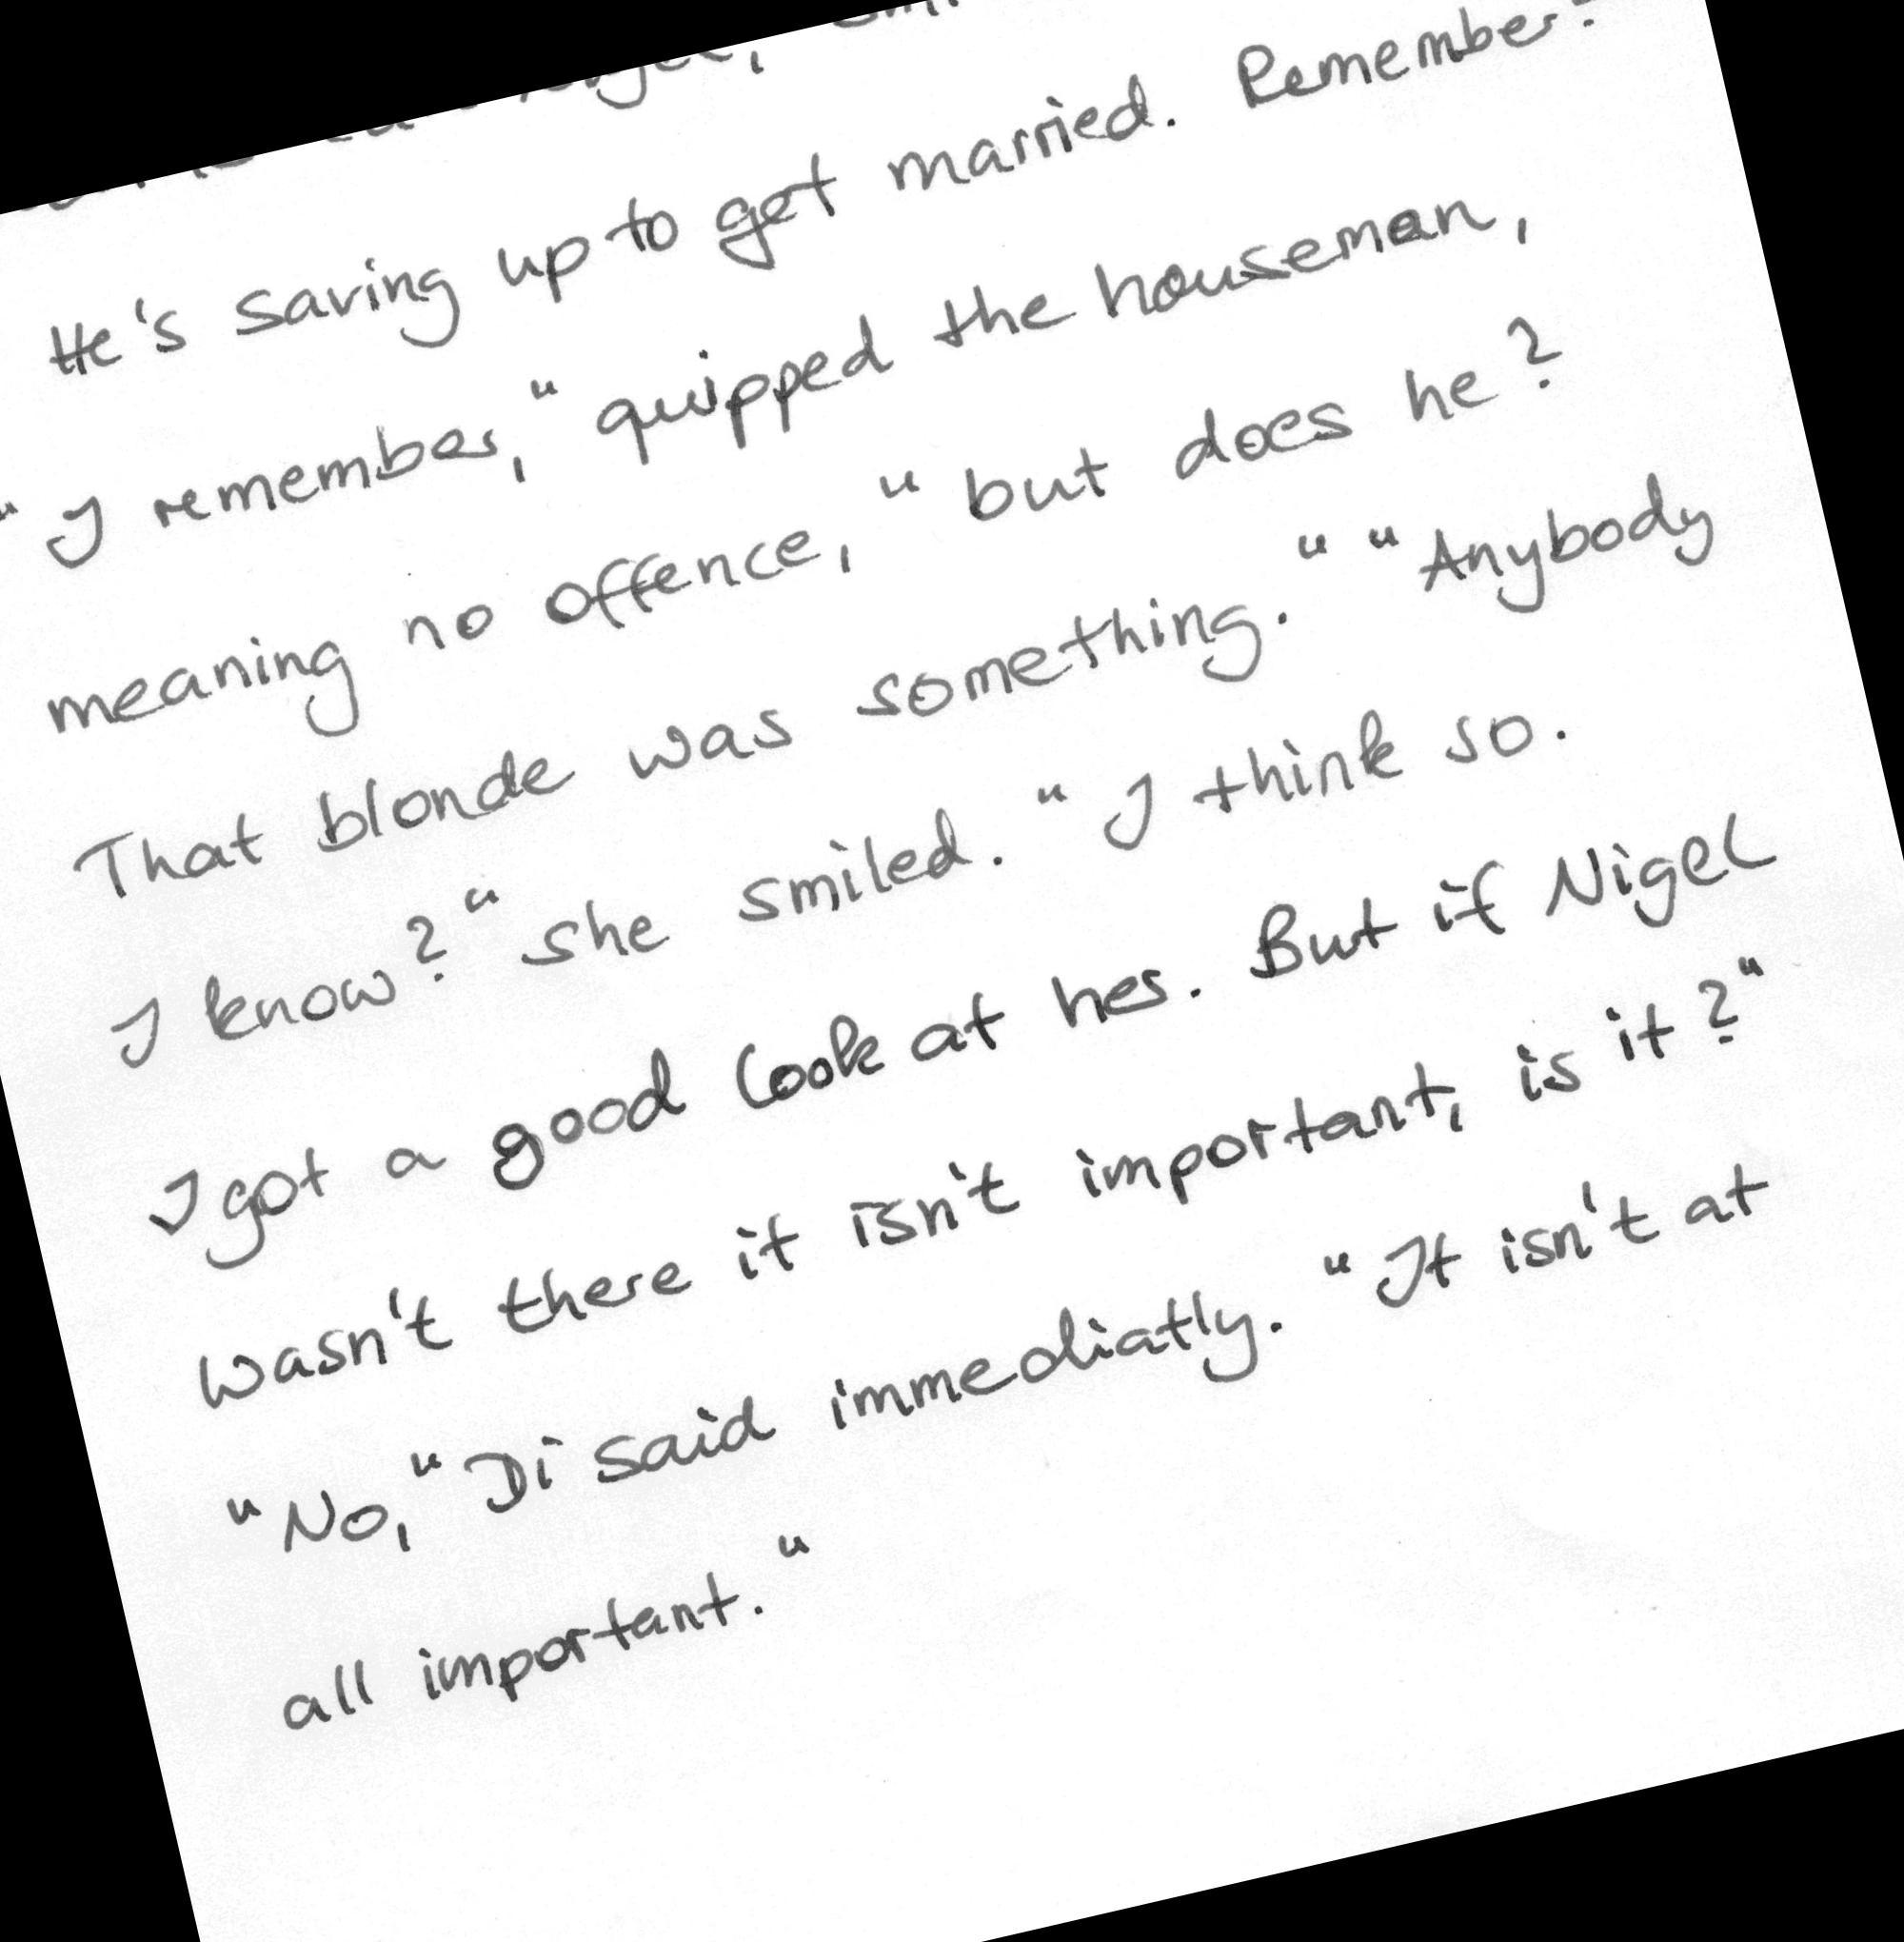 He's saving up to get married. Remember?
"I remember," quipped the houseman,
meaning no offence, "but does he?
That blonde was something." "Anybody
I know?" she smiled. "I think so.
I got a good look at her. But if Nigel
wasn't there it isn't important, is it?"
"No," Di said immediatly. "It isn't at
all important."